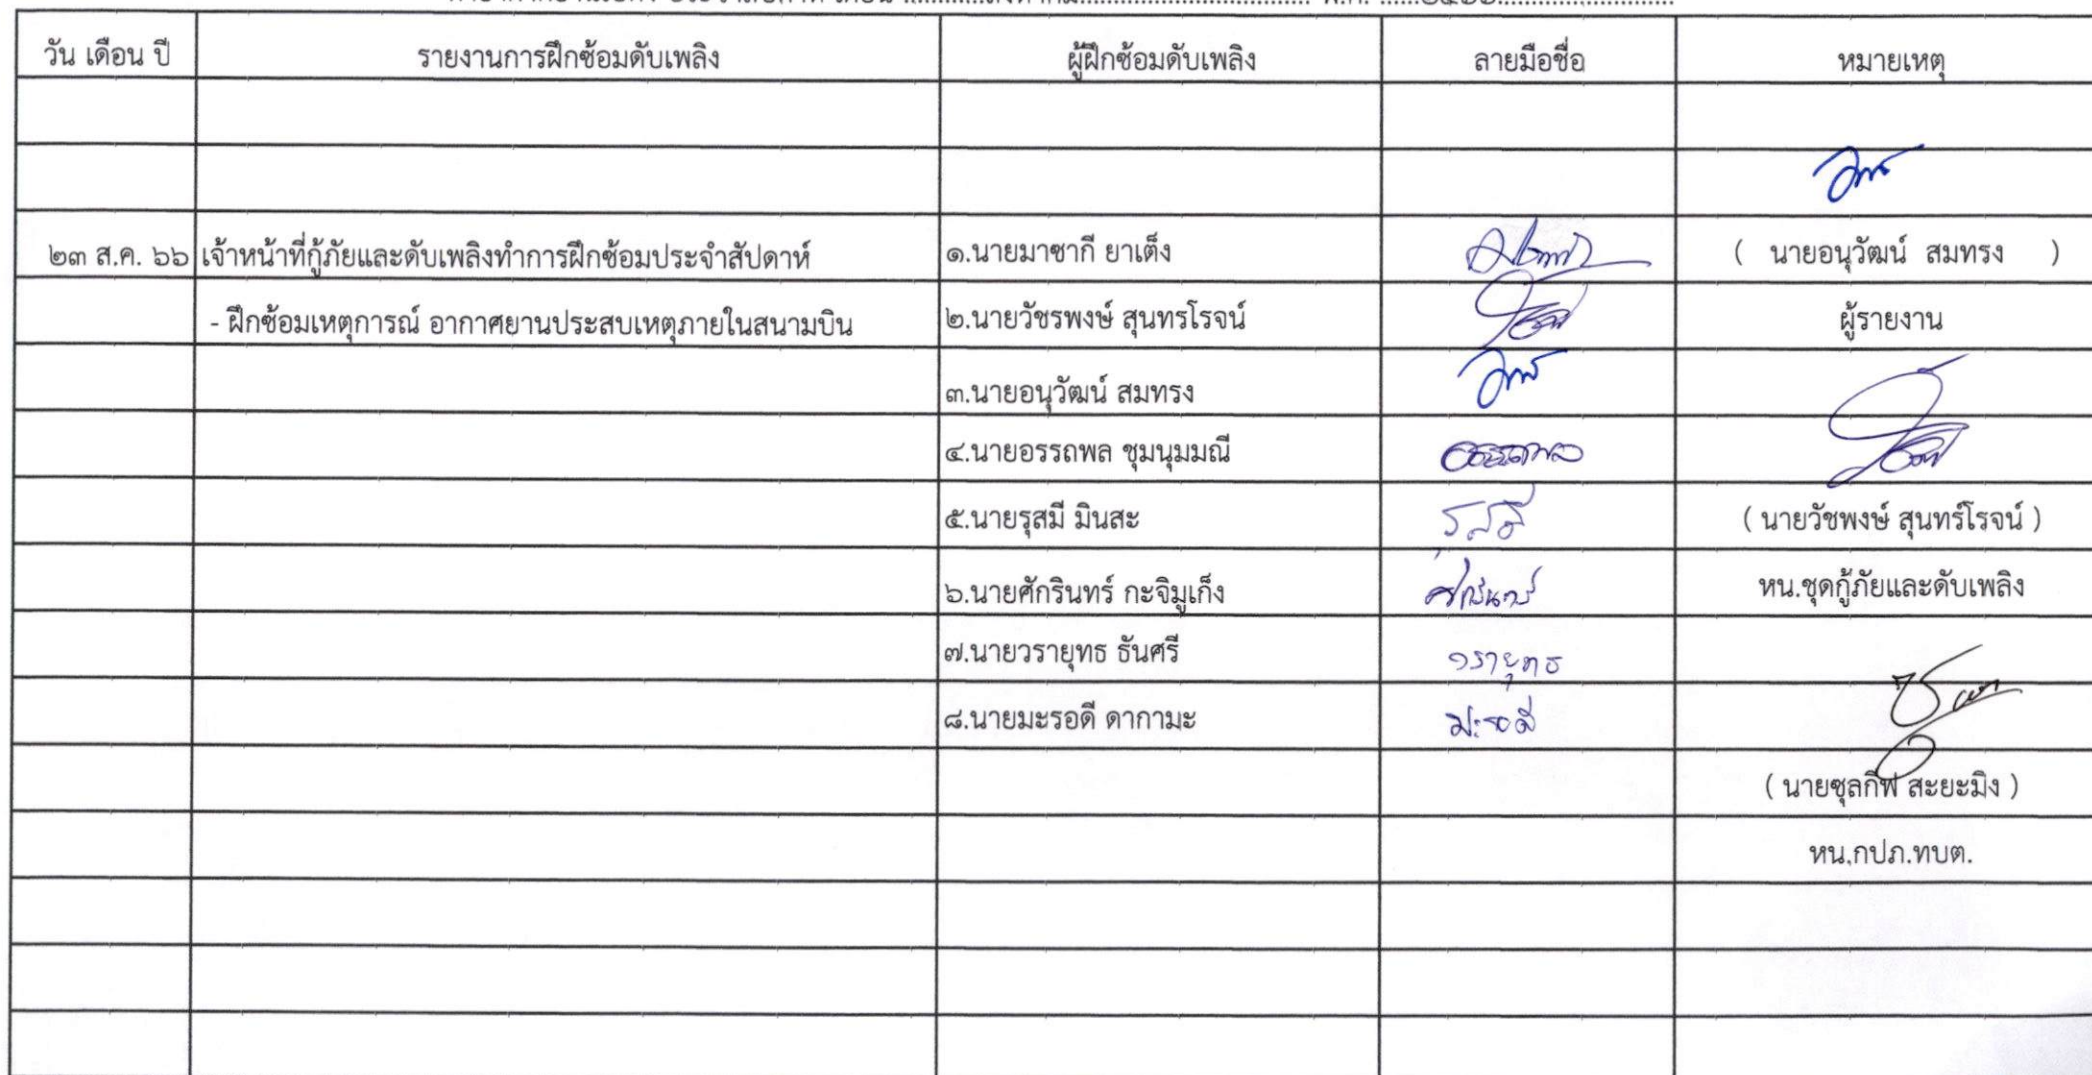 วัน เดือน ปี รายงานการฝึกซ้อมดับเพลิง ผู้ฝึกซ้อมดับเพลิง ลายมือชื่อ หมายเหตุ
๒๓ ส.ค. ๖๖ เจ้าหน้าที่กู้ภัยและดับเพลิงทำการฝึกซ้อมประจำสัปดาห์ ๑.นายมาซากี ยาเต็ง ( นายอนุวัฒน์ สมทรง )
- ฝึกซ้อมเหตุการณ์ อากาศยานประสบเหตุภายในสนามบิน ๒.นายวัชรพงษ์ สุนทรโรจน์ ผู้รายงาน
๓.นายอนุวัฒน์ สมทรง
๔.นายอรรถพล ชุมนุมมณี อรรถพล
๕.นายรุสมี มินสะ รุสมี ( นายวัชพงษ์ สุนทร์โรจน์ )
๖.นายศักรินทร์ กะจิมูเก็ง ศักรินทร์ หน.ชุดกู้ภัยและดับเพลิง
๗.นายวรายุทธ ธันศรี วรายุทธ
๘.นายมะรอดี ดากามะ มะรอดี
( นายซุลกีฟ สะยะมิง )
หน.กปภ.ทบต.